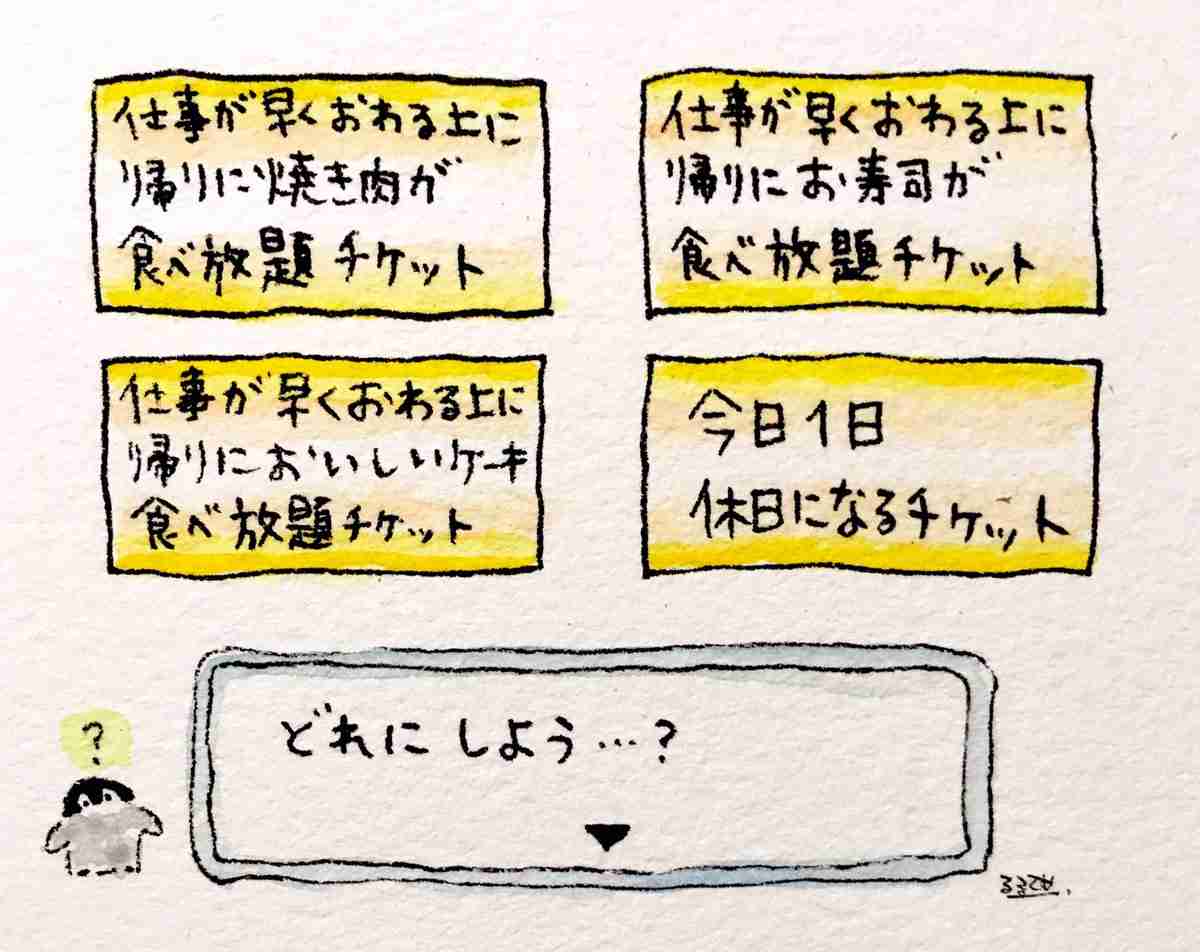 仕事が早くおわる上に
帰りに焼き肉が
食べ放題チケット
仕事が早くおわる上に
帰りにお寿司が
食べ放題チケット
仕事が早くおわる上に
帰りにおいしいケーキ
食べ放題チケット
今日1日
休日になるチケット
どれにしよう…?
?
るるてあ.